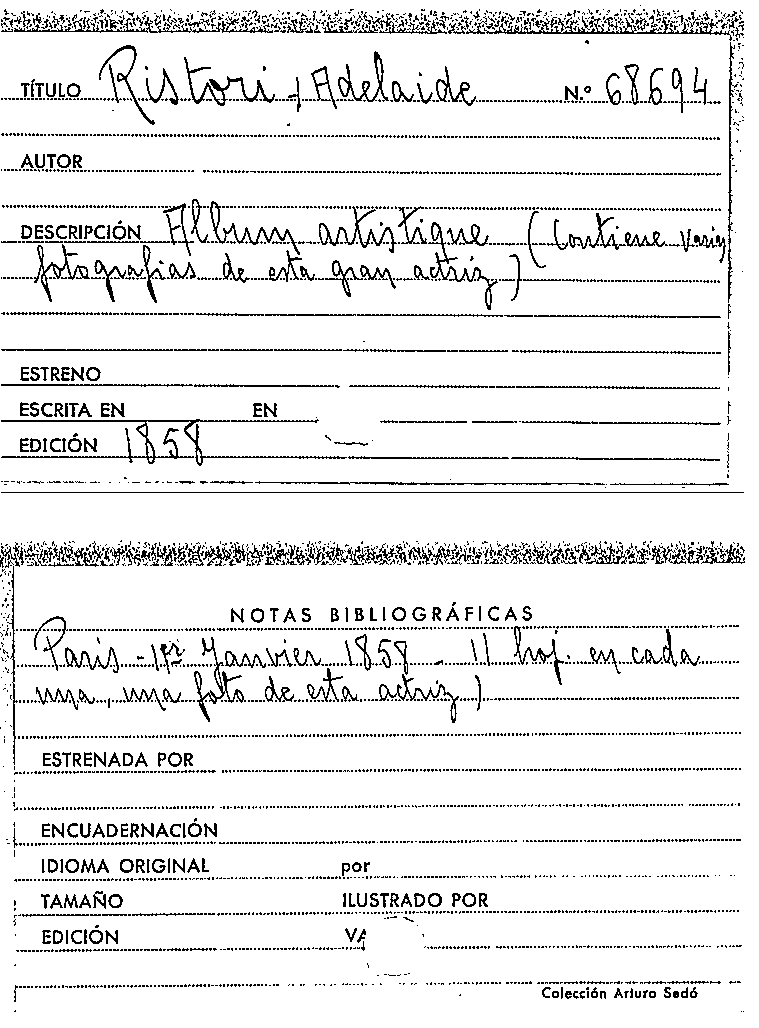 TÍTULO Ristori, Adelaide N.º 68694
AUTOR
DESCRIPCIÓN Album artistique (Contiene varias
fotografias de esta gran actriz)
ESTRENO
ESCRITA EN EN
EDICIÓN 1858
NOTAS BIBLIOGRÁFICAS
Paris - 1er Janvier 1858 - 11 hoj. en cada
una, una foto de esta actriz)
ESTRENADA POR
ENCUADERNACIÓN
IDIOMA ORIGINAL por
TAMAÑO ILUSTRADO POR
EDICIÓN VA
Colección Arturo Sedó